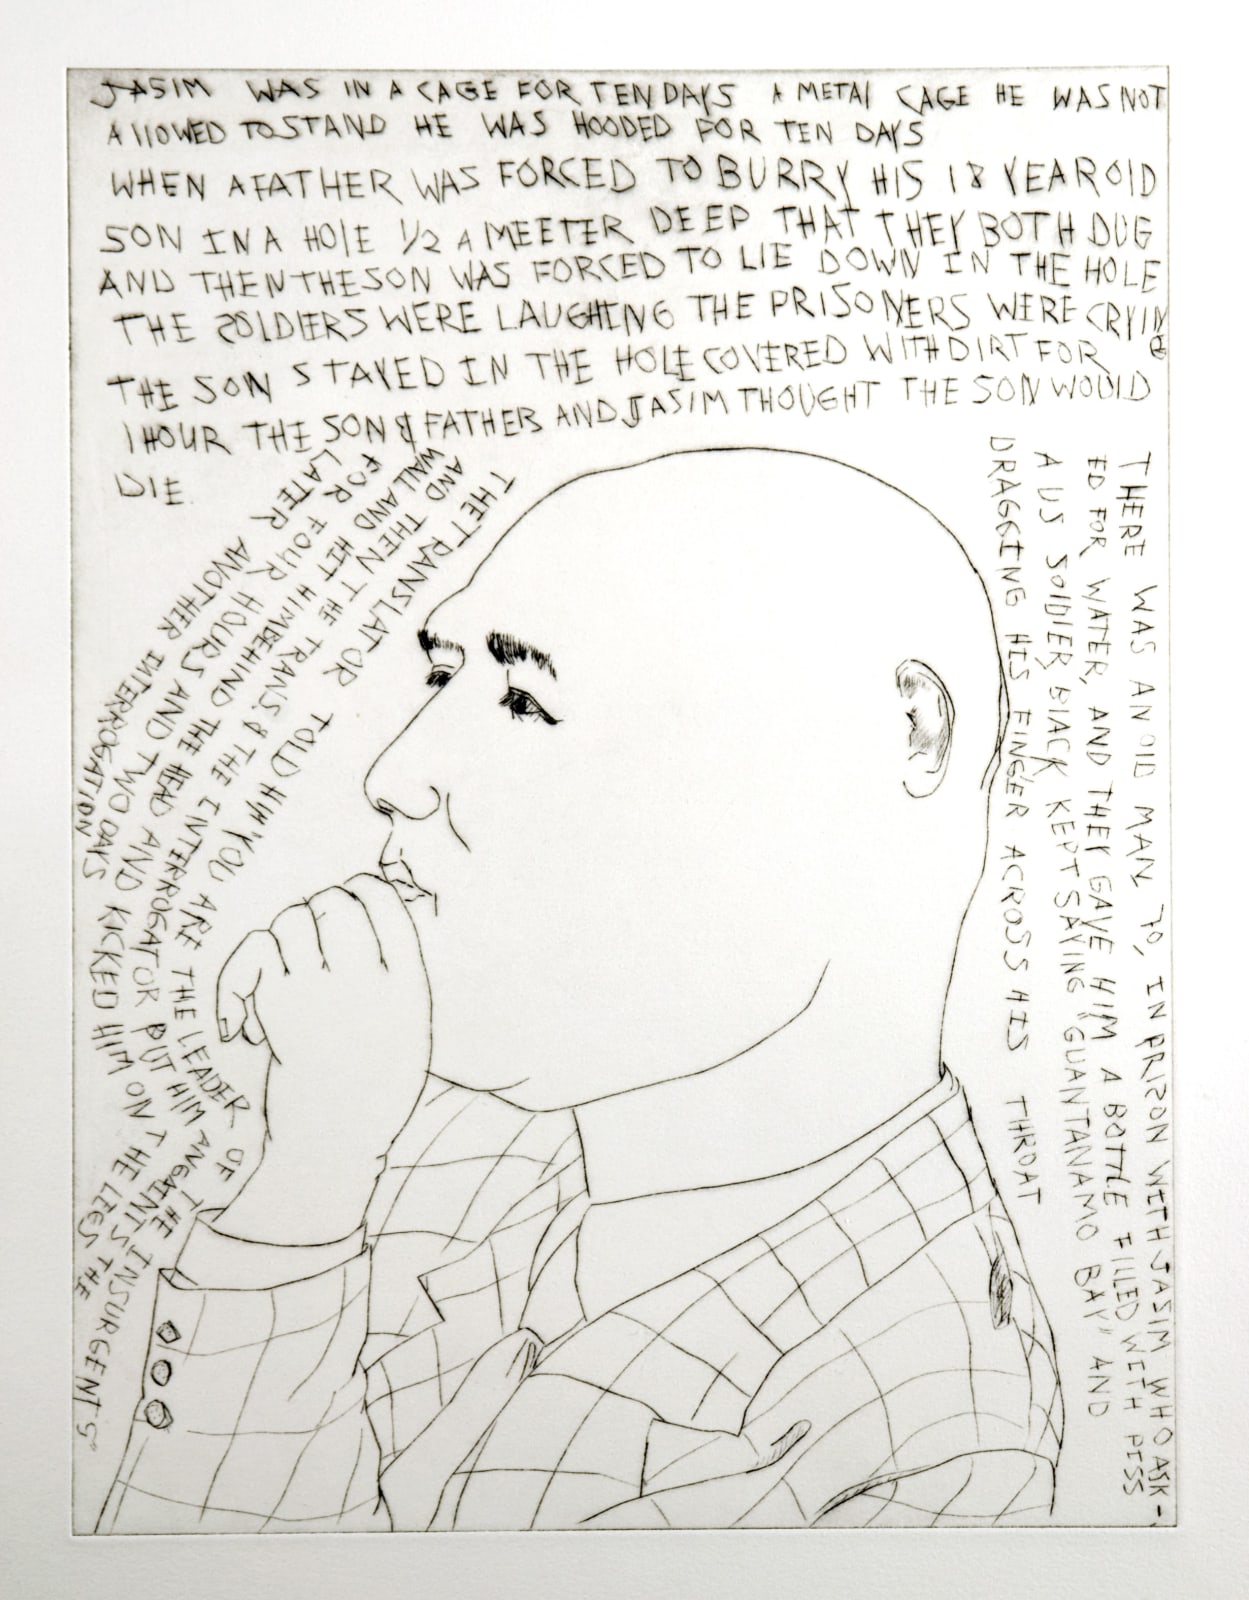 JASIM WAS IN A CAGE FOR TEN DAYS A METAL CAGE HE WAS NOT
ALLOWED TO STAND HE WAS HOODED FOR TEN DAYS
WHEN A FATHER WAS FORCED TO BURRY HIS 18 YEAR OLD
SON IN A HOLE 1/2 A MEETER DEEP THAT THEY BOTH DUG
AND THEN THE SON WAS FORCED TO LIE DOWN IN THE HOLE
THE SOLDIERS WERE LAUGHING THE PRISONERS WERE CRYING
THE SON STAYED IN THE HOLE COVERED WITH DIRT FOR
1 HOUR THE SON & FATHER AND JASIM THOUGHT THE SON WOULD
DIE.
THERE WAS AN OLD MAN 70, IN PRISON WITH JASIM WHO ASK-
ED FOR WATER, AND THEY GAVE HIM A BOTTLE FILLED WITH PISS
A US SOLDIER BLACK KEPT SAYING "GUANTANAMO BAY" AND
DRAGGING HIS FINGER ACROSS HIS THROAT
THE TRANSLATOR TOLD HIM "YOU ARE THE LEADER OF THE INSURGENTS"
AND THEN THE TRANS. & THE INTERROGATOR PUT HIM AGAINTS THE
WALL AND HIT HIM BEHIND THE HEAD AND KICKED HIM ON THE LEGS
FOR FOUR HOURS AND TWO DAYS
LATER ANOTHER INTERROGATION